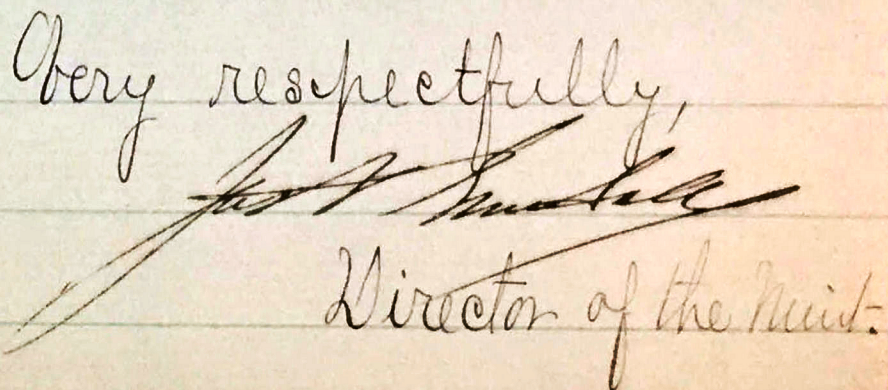 Very respectfully,
Jas P Kimball
Director of the Mint.